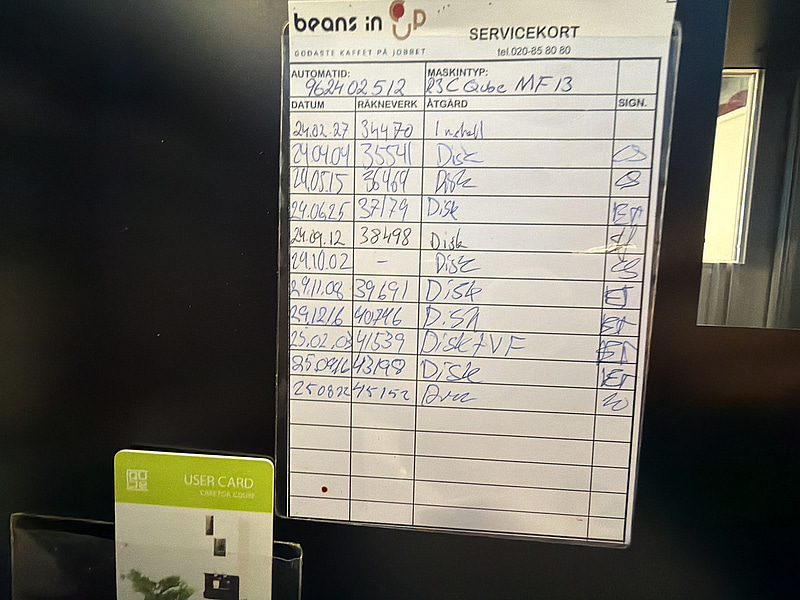 beans in up
GODASTE KAFFET PÅ JOBBET
SERVICEKORT
tel.020-85 80 80
AUTOMATID: 962402512 MASKINTYP: 23C Qube MF13
DATUM RÄKNEVERK ÅTGÄRD SIGN.
24.02.27 34470 Install
24.04.04 35541 Disk
24.05.15 36469 Disk
24.06.25 37179 Disk
24.09.12 38498 Disk
24.10.02 – Disk
24.11.08 39691 Disk
24.12.16 40746 Disk
25.02.03 41539 Disk+VF
43198 Disk
45152
USER CARD